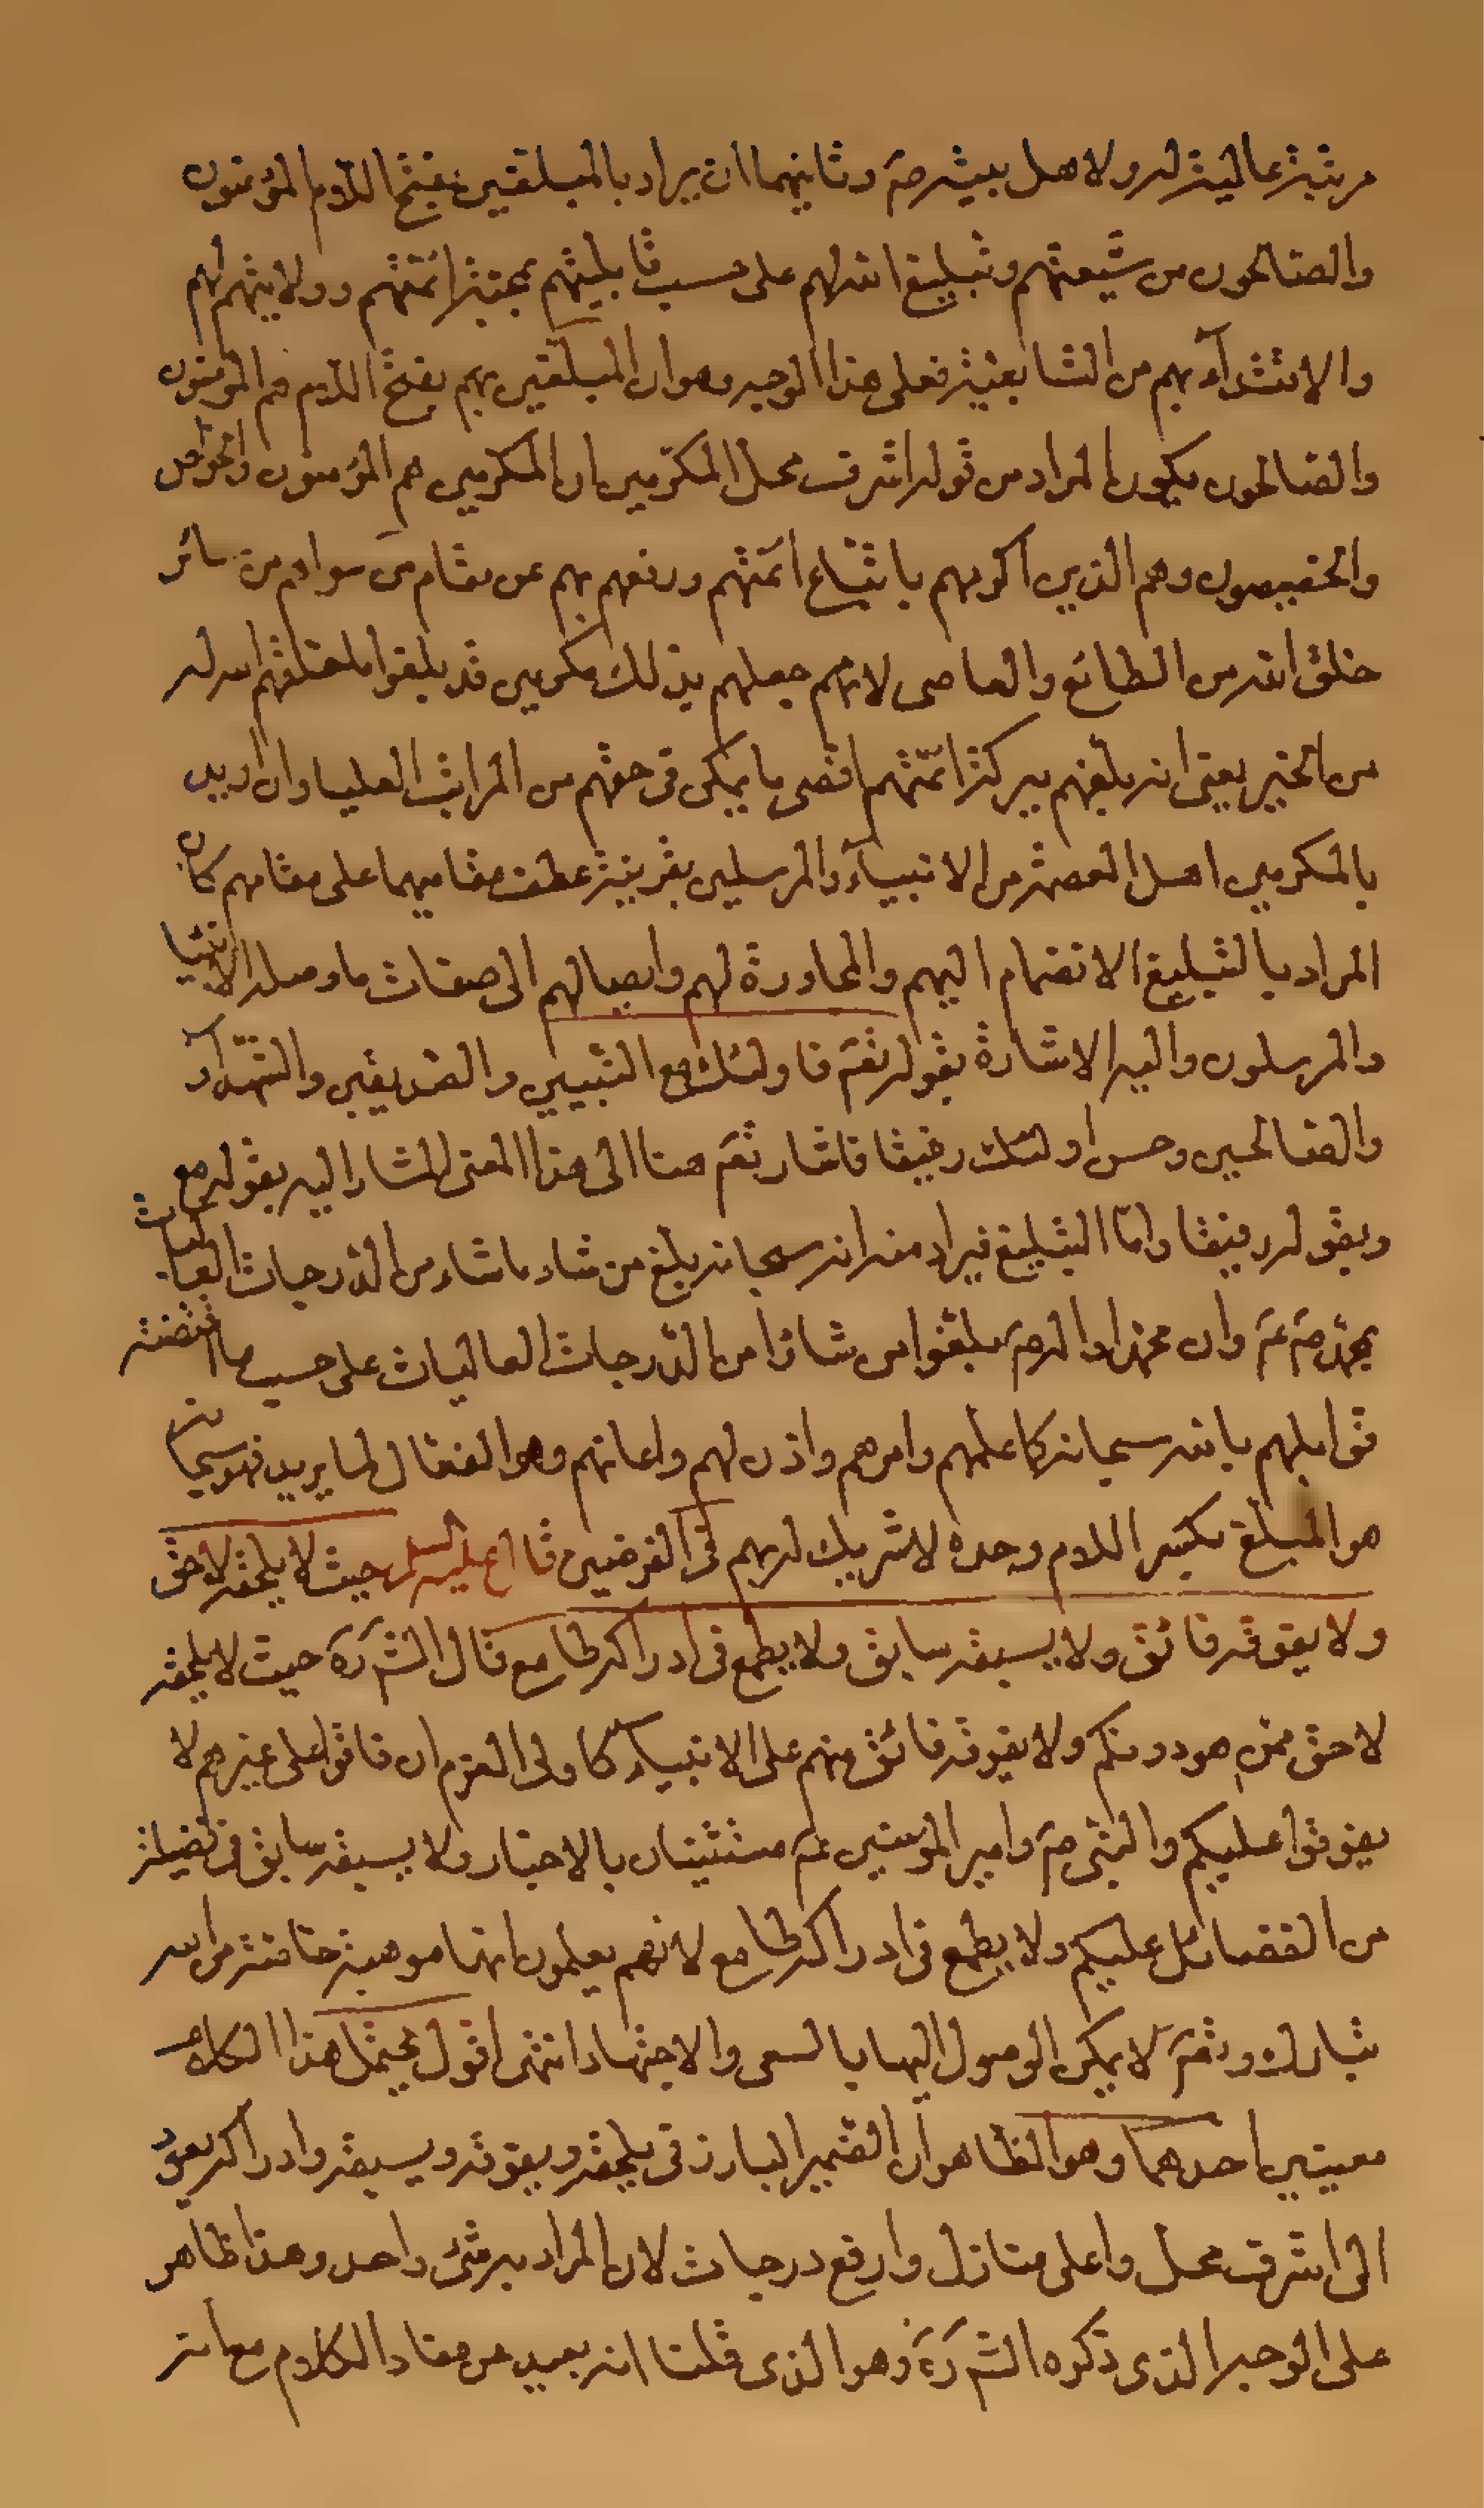 مرتبة عالية له ولاهل بيته صم وثانيهما ان يراد بالمبلغين بفتح اللام المؤمنون
والصالحون من شيعتهم وتبليغ الله لهم على حسب قابليتهم بمحبة ائمتهم وولايتهم لهم
والاقتداء بهم من المتابعة فعلى هذا الوجه وهو ان المبلغين بهم بفتح اللام هم المؤمنون
والصالحون يكون المراد من قوله اشرف محل المكرمين ان المكرمين هم المؤمنون والخواص
والخصيصون وهم الذين اكرمهم باتباع ائمتهم ورفعهم بهم عن مقام من سواهم من سائر
خلق الله من الطائع والعاصى لانهم جعلهم بذلك مكرمين قد بلغوا ما خلقهم الله له
من الخير يعنى انه بلغهم ببركة ائمتهم اقصى ما يمكن فى حقهم من المراتب العليا وان اريد
بالمكرمين اهل العصمة من الانبياء والمرسلين بقرينة عطف مقاميهما على مقامهم كان
المراد بالتبليغ الانضمام اليهم والمجاورة لهم وايصالهم الى صفات ما وصله الانبيا
والمرسلون واليه الاشارة بقوله تعم فاولئك مع النبيين والصديقين والشهداء
والصالحين وحسن اولئك رفيقا فاشار تعم هنا الى هذا المعنى المشار اليه بقوله مع
وبقوله رفيقا واما التبليغ فيراد منه انه سبحانه بلغ من شاء ما شاء من الدرجات العاليات
بمحمد صم عم وان محمدا واله صم بلغوا من شاؤا من الدرجات العاليات على حسب ما اقتضته
قوابلهم بالله سبحانه كما علمهم وامرهم واذن لهم واعانهم وهو الفعال لما يريد فهو سبحانه
هو المبلغ بكسر اللام وحده لا شريك له بهم فى الفرضين قال عليه السلم حيث لا يلحقه لاحق
ولا يفوقه فائق ولا يسبقه سابق ولا يطمع فى ادراكه طامع قال الشم ره حيث لا يلحقه
لاحق ممن هو دونكم ولا يفوقه فائق منهم على الانبياء كاولى العزم ان فاقوا على غيرهم لا
يفوقوا عليكم والنبى صم وامير المؤمنين عم مستثنيان بالاخبار ولا يسبقه سابق فى فضيلة
من الفضائل عليكم ولا يطمع فى ادراكه طامع لانهم يعلمون انها موهبة خاصة من الله
تبارك وتعم لا يمكن الوصول اليها بالسعى والاجتهاد انتهى اقول يحتمل هذا الكلام
معنيين احدهما وهو الظاهر ان الضمير البارز فى يلحقه ويفوقه ويسبقه وادراكه يعود
الى اشرف محل واعلى منازل وارفع درجات لان المراد به شئ واحد وهذا ظاهر
على الوجه الذى ذكره الشم ره وهو الذى قلنا انه بعيد من مفاد الكلام مع انه